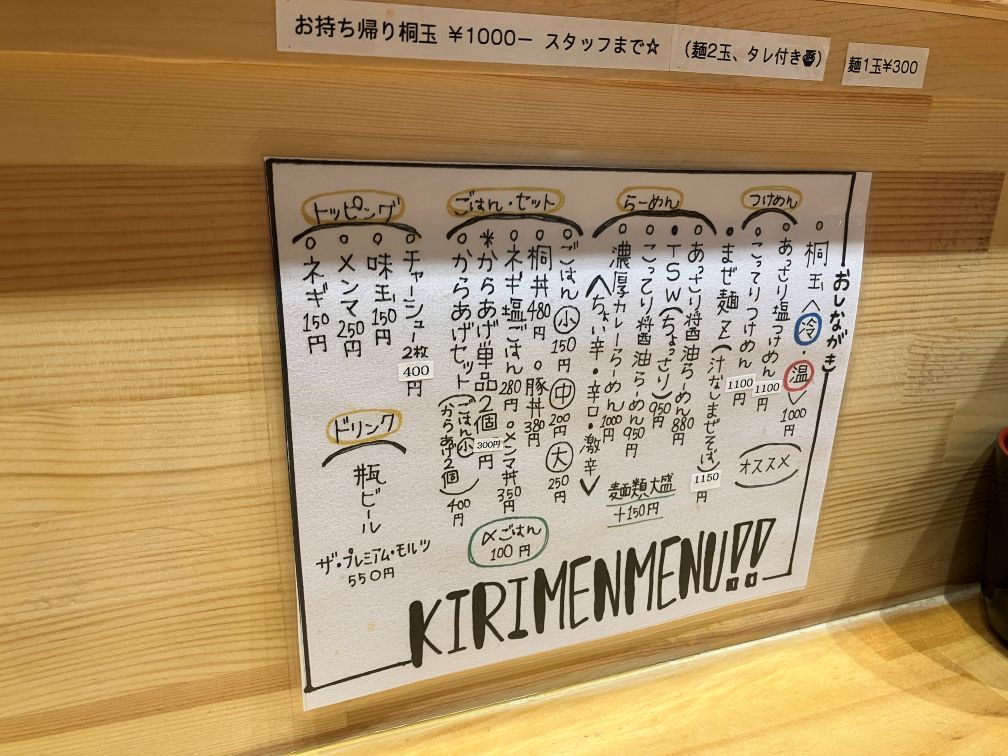 お持ち帰り桐玉 ¥1000- スタッフまで☆
(麺2玉、タレ付き)
麺1玉¥300
おしながき
桐玉〈冷・温〉1000円
オススメ
つけめん
あっさり塩つけめん 1100円
こってりつけめん 1100円
まぜ麺Z(汁なしまぜそば) 1150円
らーめん
あっさり醤油らーめん 880円
TSW(ちょっさり) 950円
こってり醤油らーめん 950円
濃厚カレーらーめん 1000円
〈ちょい辛・辛口・激辛〉
麺類大盛
+150円
ごはん・セット
ごはん 小 150円 中 200円 大 250円
桐丼 480円 豚丼 380円
ネギ塩ごはん 280円 メンマ丼 350円
*からあげ単品2個 300円
からあげセット(ごはん小 からあげ2個) 400円
〆ごはん
100円
トッピング
チャーシュー 2枚 400円
味玉 150円
メンマ 250円
ネギ 150円
ドリンク
瓶ビール
ザ・プレミアム・モルツ
550円
KIRIMENMENU!!